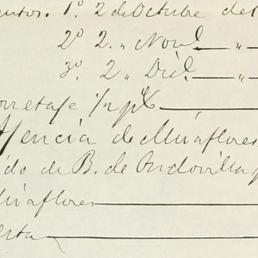 entos. 1º 2 de Octubre de
2º 2 „ Nov. — „
3º 2 „ Dic. — „
orretaje
Agencia de Miraflores
ido de B. de Ondovilla
iraflores
erta